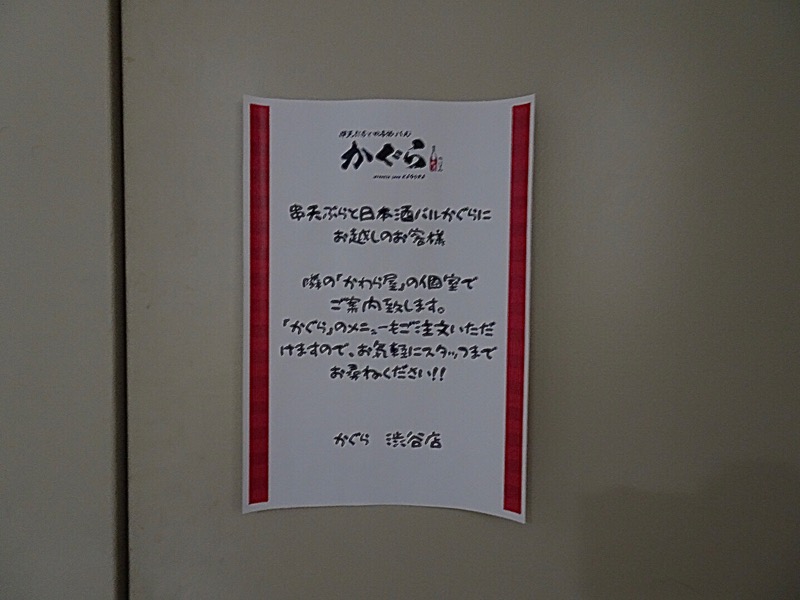 かぐら
串天ぷらと日本酒バルかぐらに
お越しのお客様
隣の「かわら屋」の個室で
ご案内致します。
「かぐら」のメニューもご注文いただ
けますので、お気軽にスタッフまで
お尋ねください!!
かぐら 渋谷店